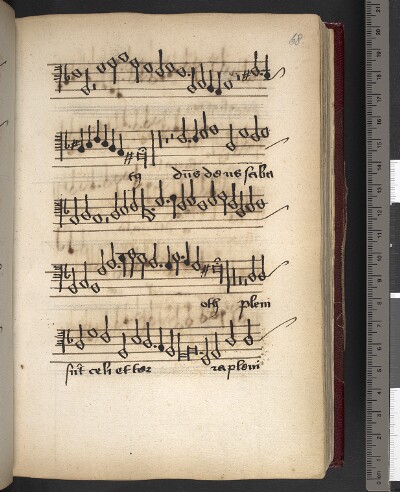 68.
dns deus saba
oth pleni
sunt celi et ter ra pleni